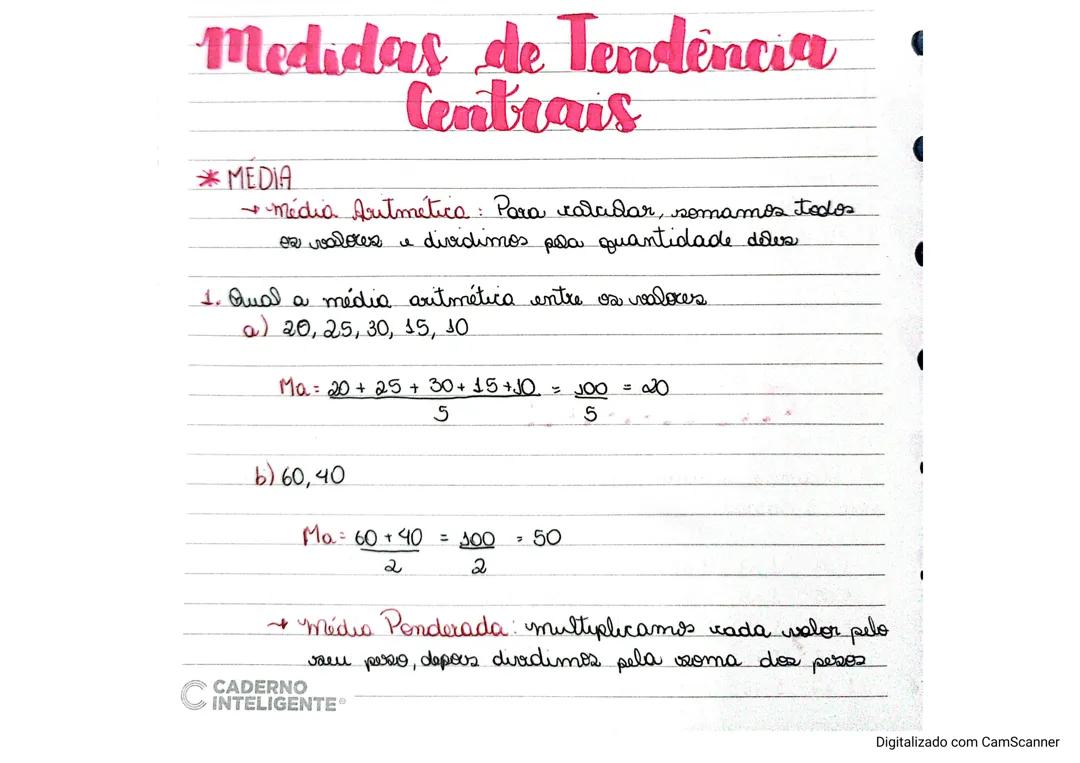 Medidas de Tendência
Centrais
* MÉDIA
→ Média Aritmética: Para calcular, somamos todos
os valores e dividimos pela quantidade deles
1. Qual a média aritmética entre os valores
a) 20, 25, 30, 15, 10
Ma = 20 + 25 + 30 + 15 + 10 = 100 = 20
5 5
b) 60, 40
Ma = 60 + 40 = 100 = 50
2 2
→ Média Ponderada: multiplicamos cada valor pelo
seu peso, depois dividimos pela soma dos pesos
CADERNO
INTELIGENTE®
Digitalizado com CamScanner